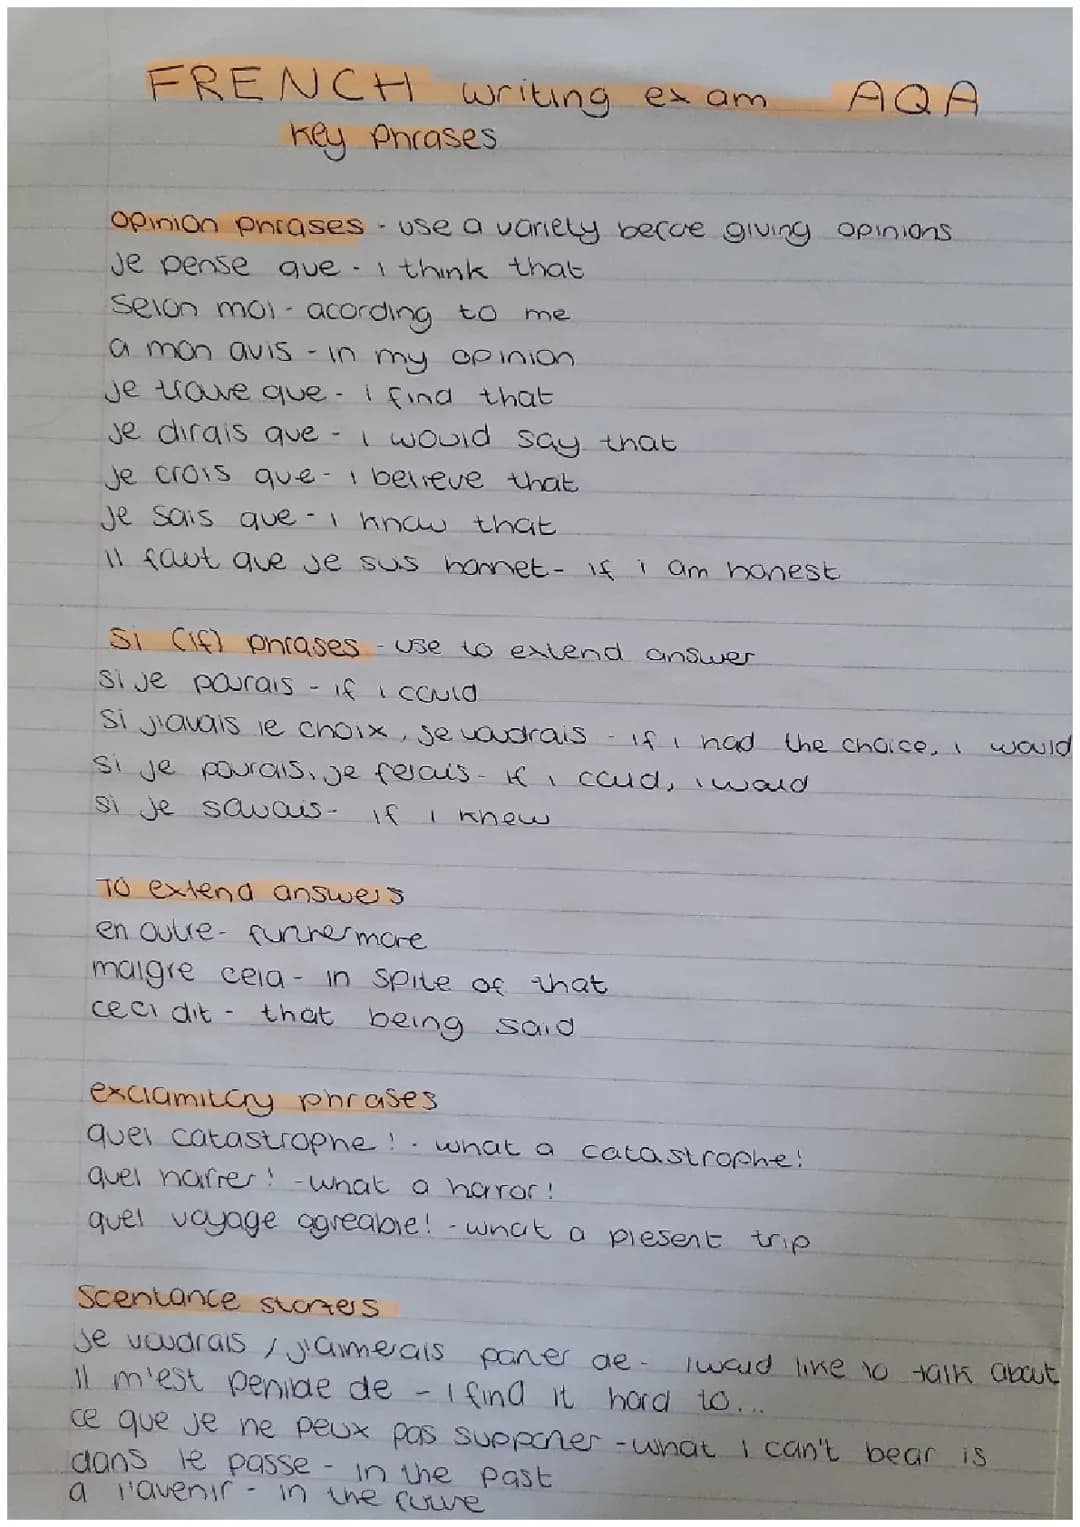 FRENCH writing exam AQA
key phrases
opinion phrases - use a variety becoe giving opinions
je pense que - i think that
selon moi - acording to me
a mon avis - in my opinion
je trouve que - i find that
je dirais que - i would say that
je crois que - i believe that
je sais que - i know that
il faut que je suis honnet - if i am honest
si (if) phrases - use to extend answer
si je pourais - if i could
si j'avais le choix, je voudrais - if i had the choice, i would
si je pourais, je ferais - if i coud, i woud
si je savais - if i knew
To extend answers
en outre - furthermore
malgre cela - in spite of that
ceci dit - that being said
exclamitory phrases
quel catastrophe! - what a catastrophe!
quel horrer! - what a horror!
quel voyage agreable! - what a plesent trip
Scentance starters
je voudrais / j'aimerais parler de - i woud like to talk about
il m'est penible de - i find it hard to...
ce que je ne peux pas supporter - what i can't bear is
dans le passe - in the past
a l'avenir - in the future